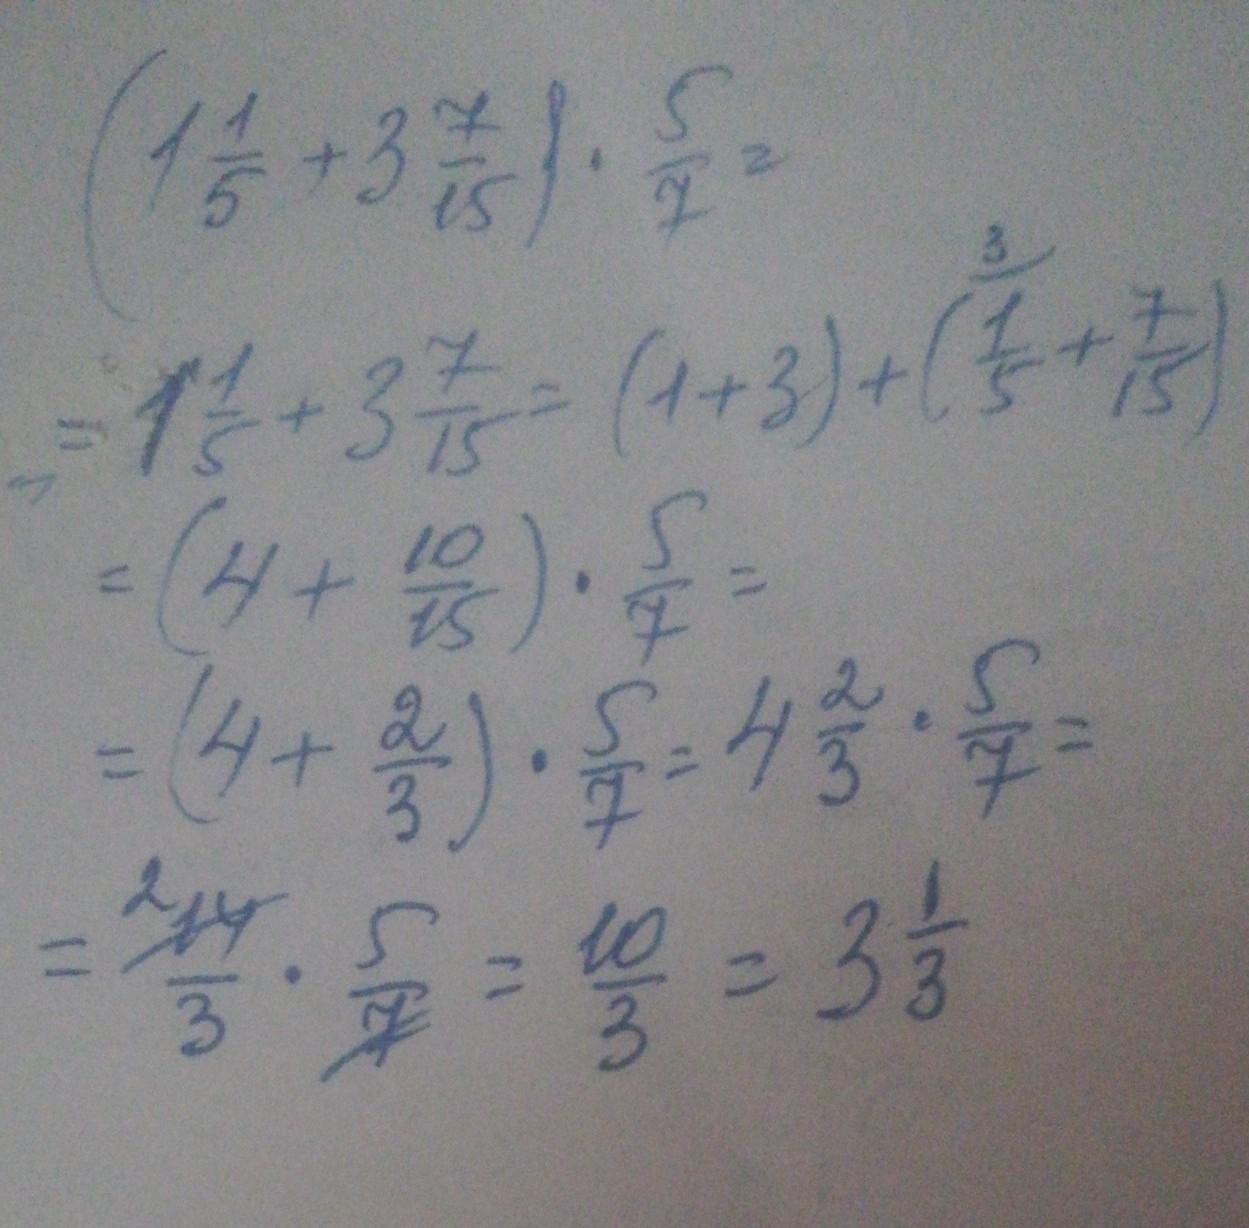 (1 1/5 + 3 7/15) · 5/7 =
= 1 1/5 + 3 7/15 = (1 + 3) + (1/5 ³⁄ + 7/15)
= (4 + 10/15) · 5/7 =
= (4 + 2/3) · 5/7 = 4 2/3 · 5/7 =
= 2 14/3 · 5/7 = 10/3 = 3 1/3